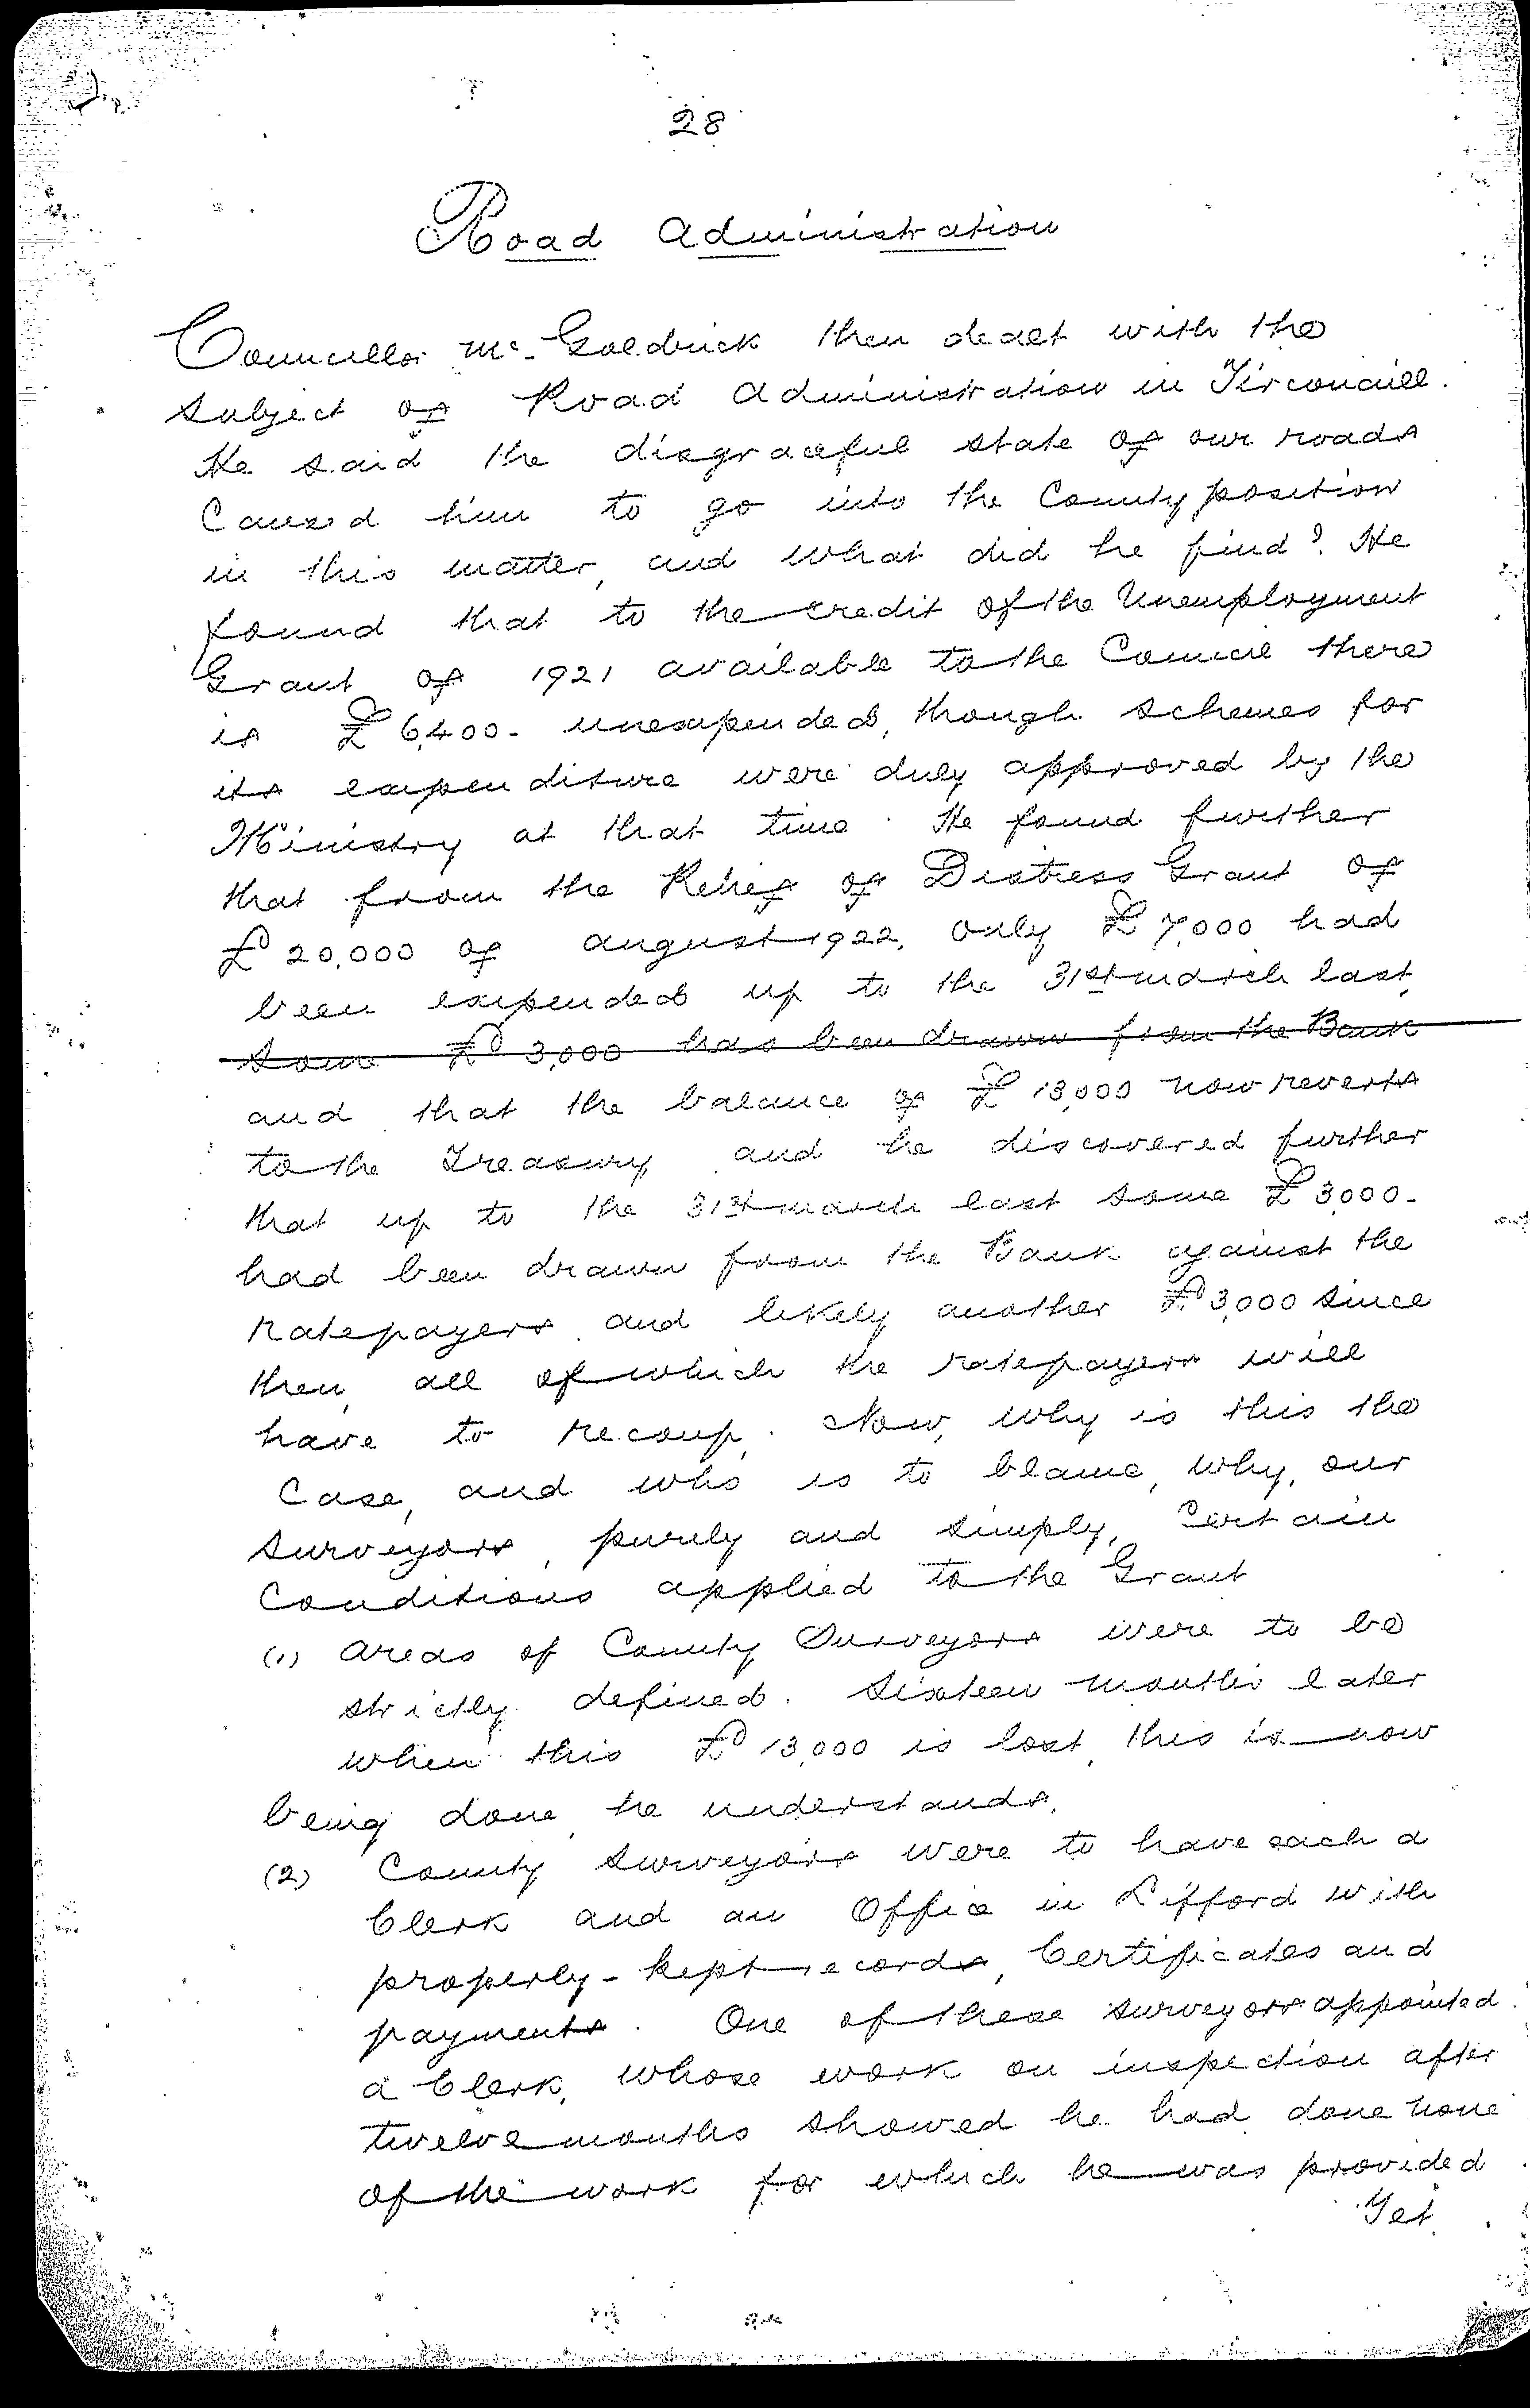 28
Road Administration
Councillor Mc. Goldrick then dealt with the
subject of Road Administration in Tirconaill.
He said the disgraceful state of our roads
caused him to go into the County position
in this matter, and what did he find? He
found that to the credit of the Unemployment
Grant of 1921 available to the Council there
is £6,400- unexpended, though schemes for
its expenditure were duly approved by the
Ministry at that time. He found further
that from the Relief of Distress Grant of
£20,000 of August 1922, only £7,000 had
been expended up to the 31st March last,
some £3,000 has been drawn from the Bank
and that the balance of £13,000 now reverts
to the Treasury and he discovered further
that up to the 31st March last some £3000-
had been drawn from the Bank against the
ratepayers and likely another £3,000 since
then, all of which the ratepayers will
have to recoup. Now, why is this the
Case, and who is to blame, why, our
surveyors, purely and simply, Certain
Conditions applied to the Grant
(1) Areas of County Surveyors were to be
strictly defined. Sixteen months later
when this £13,000 is lost, this is now
being done, he understands.
(2) County Surveyors were to have each a
Clerk and an Office in Lifford with
properly-kept records, Certificates and
payments. One of these surveyors appointed
a Clerk, whose work on inspection after
twelve months showed he had done none
of the work for which he was provided
Yet